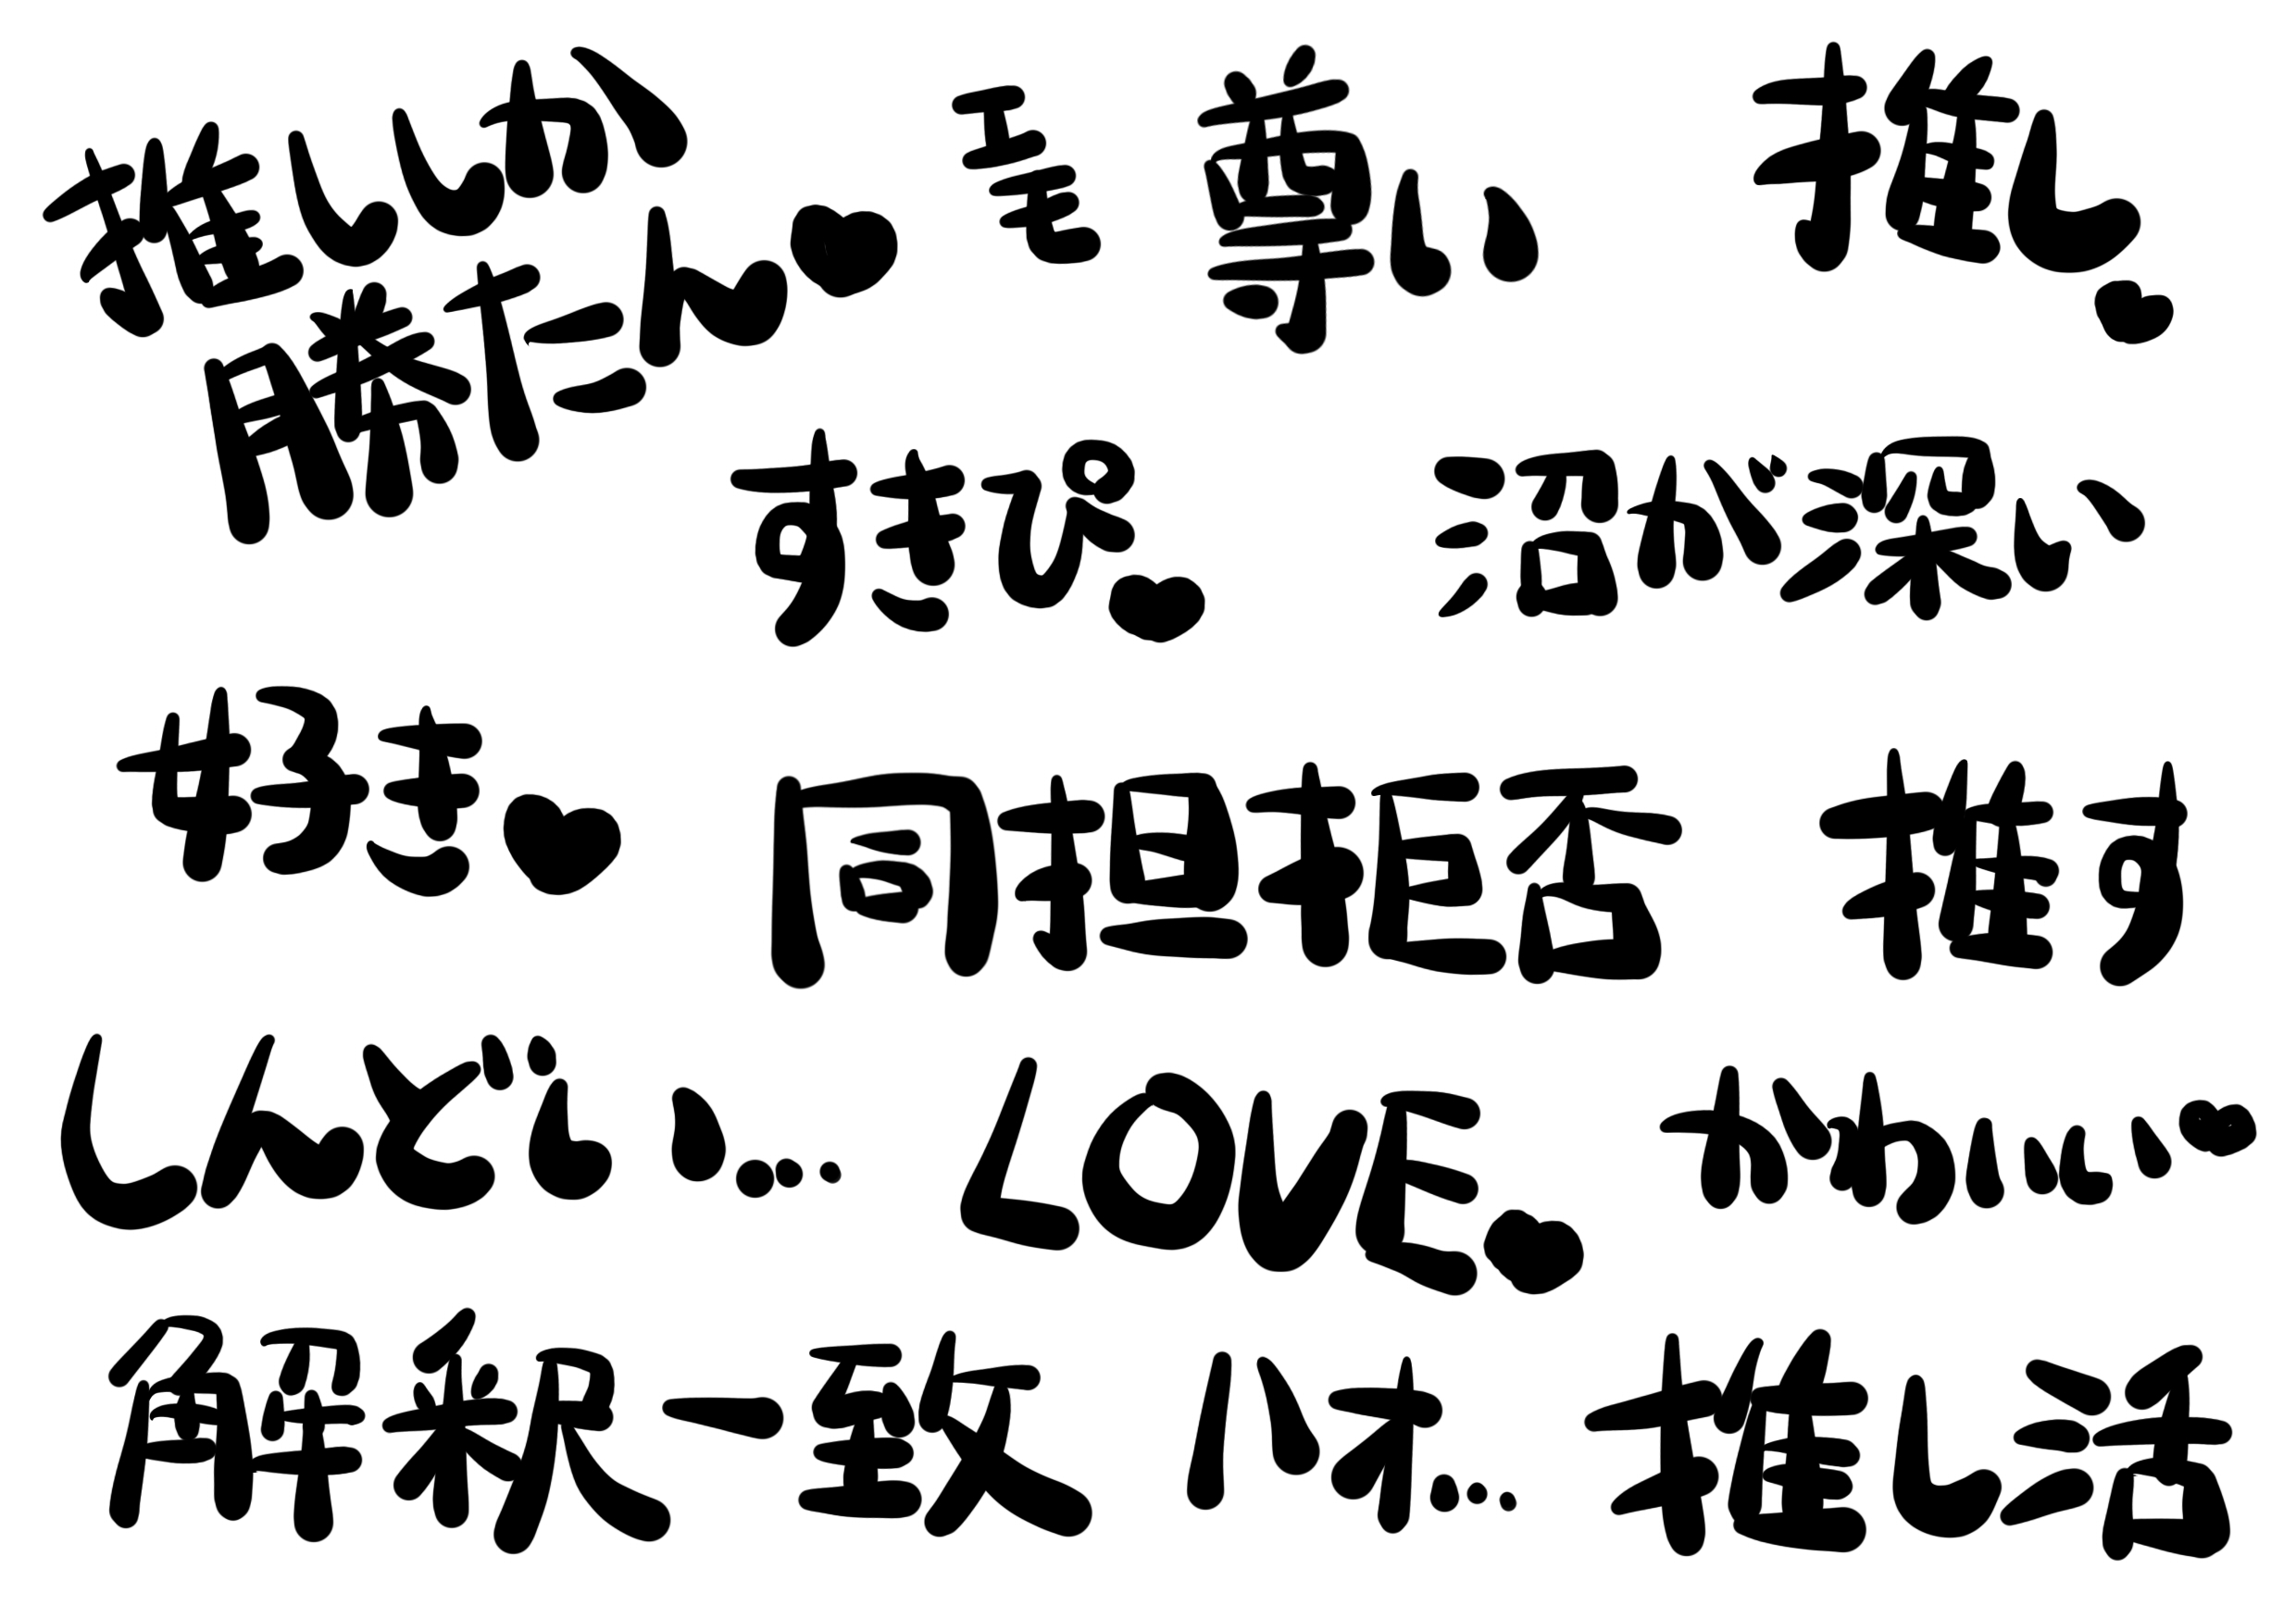 推ししか
勝たん♥
エモ
尊い
推し♥
すきぴ♥
沼が深い
好き♥
同担拒否
推す
しんどい…
LOVE♥
かわいい♥
解釈一致
ハオ…
推し活